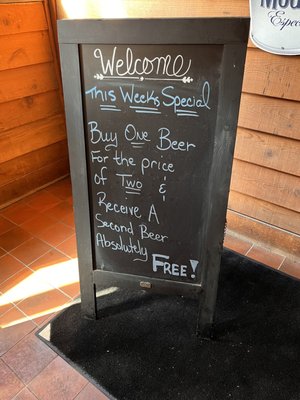 Welcome
This Weeks Special
Buy One Beer
For the price
of Two &
Receive A
Second Beer
Absolutely
FREE!
Especial